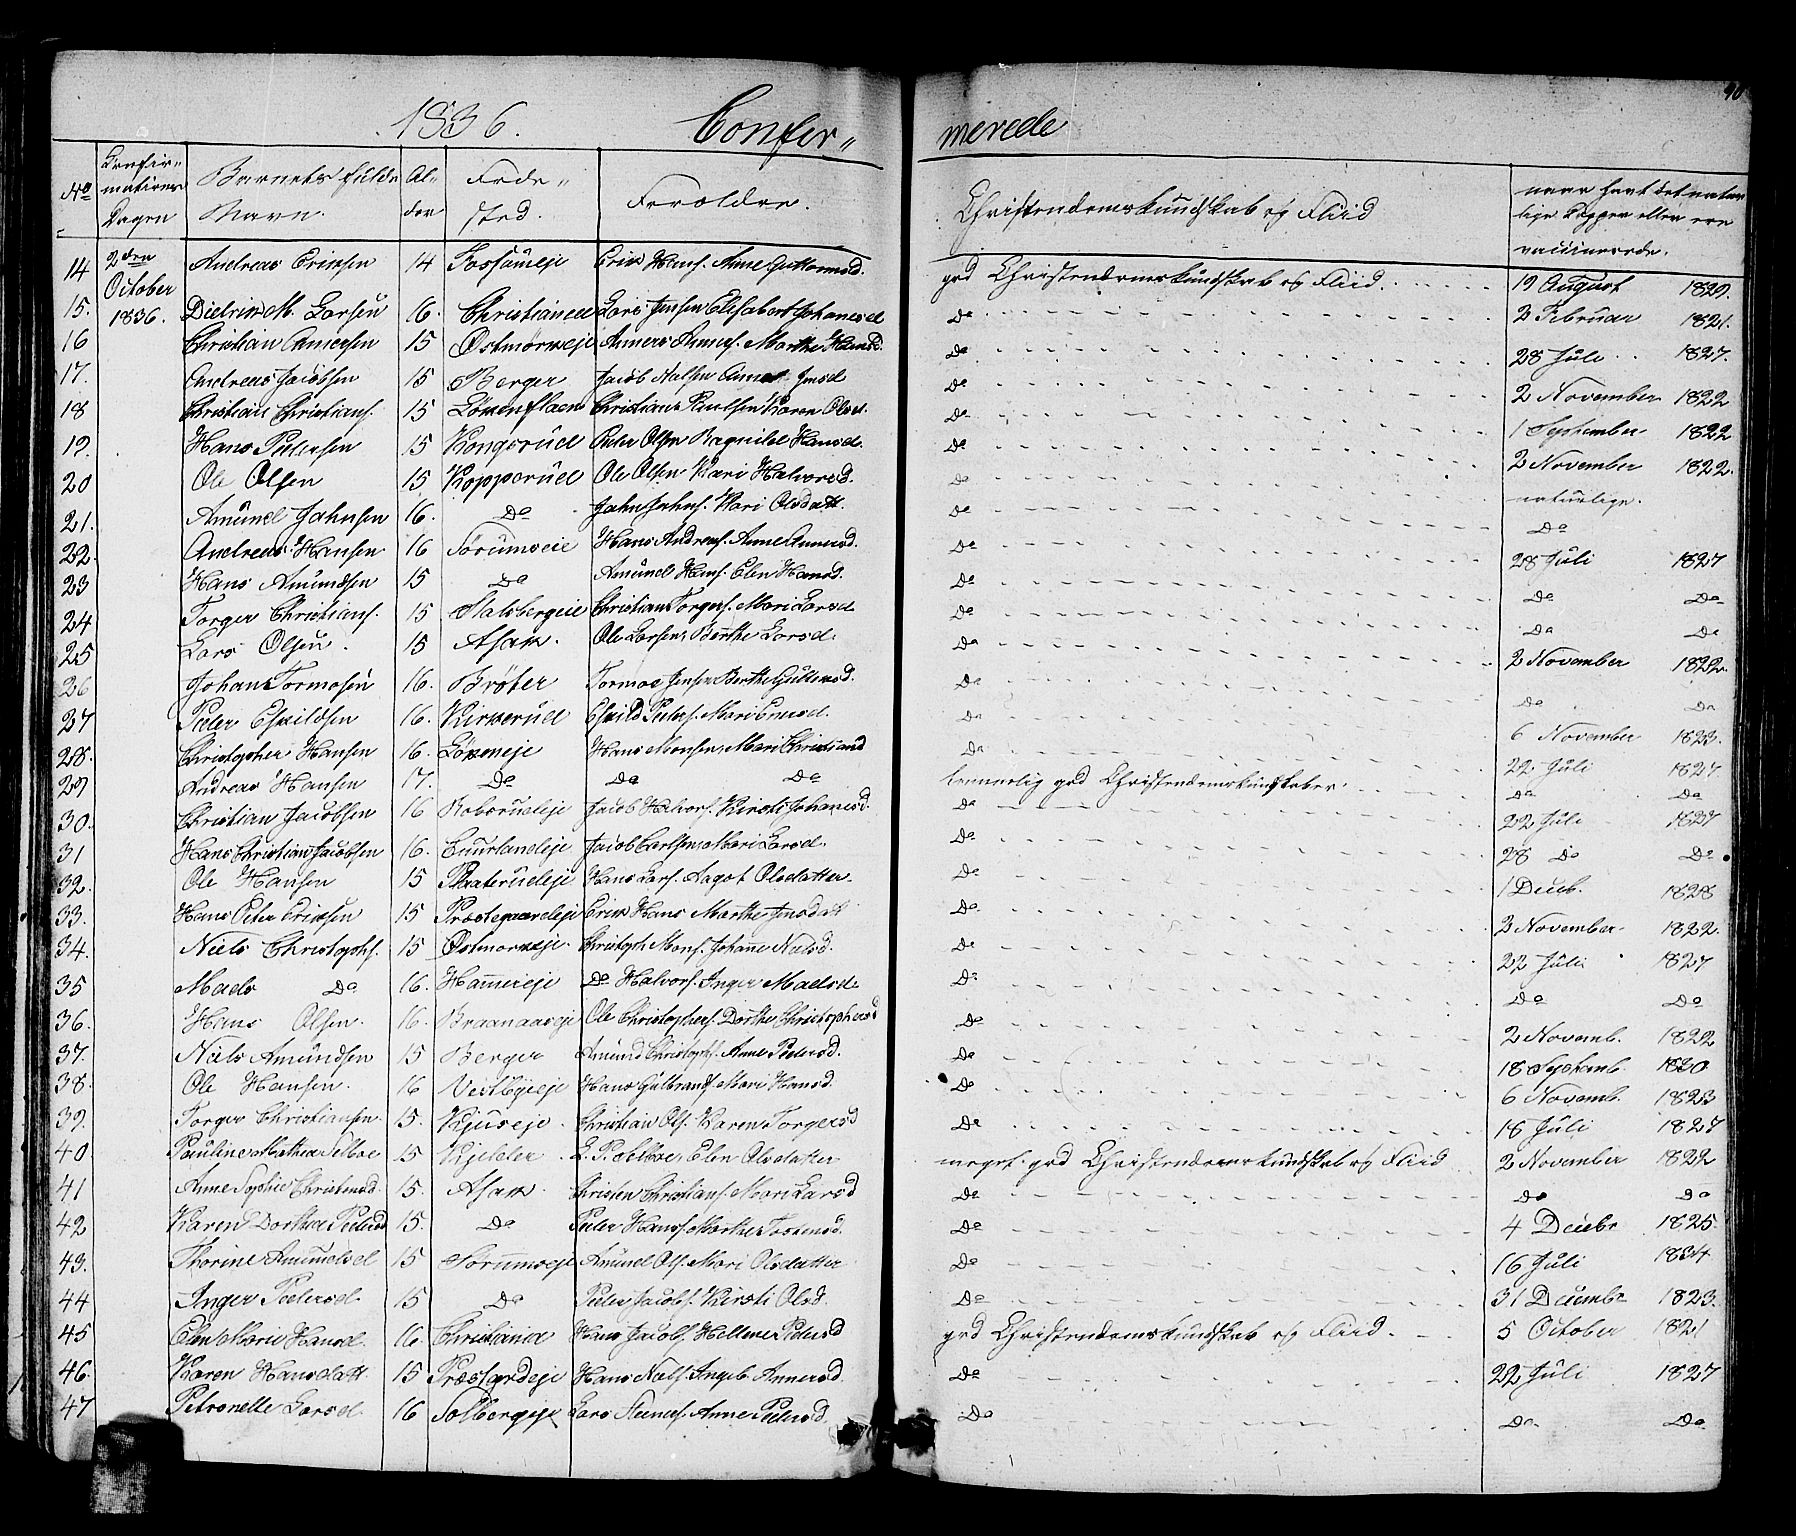 1836. Confir„ merede
40
No Confir„ mations Dagen Barnets fulde Navn. Al„ der Føde„ sted. Foroldre. Christendomskundskab og Fliid naar havt de natur lige Kopper eller ere vaccinerede.
14 2den October 1836. Andreas Eriksen 14 Fossumeje Erik Hans. Anne Guttormsd. god Christendomskundskab og Fliid 19 August 1829.
15. Didrik M. Larsen 16. Christiania Lars Jensen Elisabert Johannesd Do 2 Februar 1821.
16 Christian Andersen 15 Østmorkeje Anders Anders. Marthe Hansd. Do 28 Juli 1827.
17. Andreas Jacobsen 15 Berger Jacob Nalsen Anne Jensd Do 2 November 1822
18 Christian Christians. 15 Løkenflaen Christian Paulsen Karen Olsd. Do 1 September 1822
19. Hans Petersen 15 Kongsrud Peter Olsen Ragnild Hansd Do 2 November 1822.
20 Ole Olsen 15 Kopperud Ole Olsen Kari Halvorsd. Do naturlige.
21. Amund Jahnsen 16. Do Jahn Jahns. Kari Olsdatt. Do Do
22. Andreas Hansen 16 Sørumseie Hans Andreas. Anne Annersd. Do 28 Juli 1827
23 Hans Amundsen 15 Do Amund Hans. Elen Hansd. Do Do Do
24 Torger Christians. 15 Stalsbergeie Christian Torgers. Mari Larsd Do Do Do
25 Lars Olsen 15 Asak. Ole Larsen Berthe Larsd. Do 2 November 1822
26 Johan Tormosen 16. Brøter Tormoe Jensen Berthe Guttormsd. Do Do Do
27 Peter Eskildsen 16. Kirkerud Eskild Peters. Mari Ensd. Do 6 November 1823.
28. Christopher Hansen 16. Løkeneje Hans Monsen Mari Christiansd Do 22 Juli 1827
29 Andreas Hansen 17. Do Do Do temmelig god Christendomskundskaber. Do Do
30. Christian Jacobsen 16 Roborudeje Jacob Halvors. Kirsti Johannesd. Do 22 Juli 1827
31 Hans Christian Jacobsen 16. Cuurlandeje Jacob Carlsen Mari Larsd. Do 28 Do Do
32. Ole Hansen 15 Platerudeje Hans Lars. Aagot Olsdatter Do 1 Decb. 1828
33. Hans Peter Eriksen 15 Præstegaardeje Erik Hans Marthe Jensdatt Do 2 November 1822.
34. Niels Christophs. 15 Østmorkeje. Christoph Mons. Johanne Nielsd. Do 22 Juli 1827
35 Mads Do 16. Hammereje Do Halvors. Inger Madsd. Do Do Do
36. Hans Olsen. 16. Braanaaseje Ole Christophers. Dorthe Christophersd Do 2 Novemb. 1822
37. Niels Amundsen 15 Berger Amund Christophs. Anne Petersd. Do 18 Septemb. 1830
38. Ole Hansen. 16 Vestbyeje Hans Gulbrands. Mari Hansd. Do 6 Novemb. 1823
39. Torger Christiansen 15. Kjuseje. Christian Ols. Karen Torgersd Do 18 Juli 1827
40 Pauline Mathea Moe 15 Kjelder Elen Olsdatter meget god Christendomskundskab og Fliid 2 November 1822
41 Anne Sophie Christensd. 15. Asak Christen Christians. Mari Larsd Do Do Do
42 Karen Dorthea Petersd 15. Do Peter Hans. Marthe Tostensd. Do 4 Decbr 1825
43. Thorine Amundsd 15 Sørumseje Amund Ols. Mari Olsdatter Do 16 Juli 1834
44 Inger Petersd. 15 Do Peter Jacobs. Kirsti Olsd. Do 31 Decembr 1823.
45 Elen Marie Hansd. 16 Christiania Hans Jacobs. Hellene Petersd god Christendomskundskab og Fliid. 5 October 1821
46. Karen Hansdatt 15 Præstgrdeje Hans Niels. Ingeb. Annersd. Do 22 Juli 1827
47 Petronelle Larsd 16 Solbergeje Lars Steners. Anne Petersd. Do Do Do